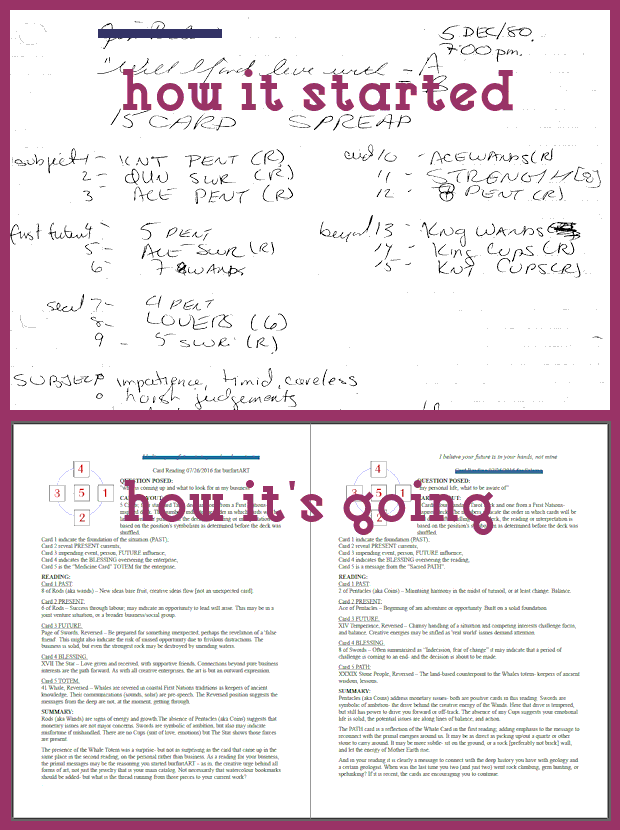 5 DEC/80.
7:00 pm.
"Will I find love with - A
B
how it started
15 CARD SPREAD
subject 1 - KNT PENT (R)
2 - QUN SWR (R)
3 ACE PENT (R)
first future 4 - 5 PENT
5 - ACE SWR (R)
6 7 WANDS
7 - 4 PENT
8 - LOVERS (6)
9 - 5 SWR (R)
10 - ACE WANDS (R)
11 - STRENGTH [8]
12 - 8 PENT (R)
13 - KNG WANDS
14 - KING CUPS (R)
15 - KNT CUPS (R)
SUBJECT impatience, timid, careless
harsh judgements
how it's going
4
3 5 1
2
Card Reading 07/26/2016 for burfurtART
QUESTION POSED:
coming up and what to look for in my business"
shuffled.
Card 1 indicate the foundation of the situation (PAST),
Card 2 reveal PRESENT currents,
Card 3 impending event, person, FUTURE influence,
Card 4 indicates the BLESSING overseeing the enterprise,
Card 5 is the "Medicine Card" TOTEM for the enterprise.
READING:
Card 1 PAST
8 of Rods (aka wands) – New ideas bear fruit, creative ideas flow [not an unexpected card]
Card 2 PRESENT:
6 of Rods – Success through labour; may indicate an opportunity to lead will arise. This may be in a
joint venture situation, or a broader business/social group.
Card 3 FUTURE:
Page of Swords, Reversed – Be prepared for something unexpected, perhaps the revelation of a 'false
friend'. This might also indicate the risk of missed opportunity due to frivolous distractions. The
business is solid, but even the strongest rock may be destroyed by unending waters.
Card 4 BLESSING:
XVII The Star – Love given and received, with supportive friends. Connections beyond pure business
interests are the path forward. As with all creative enterprises, the art is but an outward expression.
Card 5 TOTEM:
41 Whale, Reversed – Whales are revered in coastal First Nations traditions as keepers of ancient
knowledge. Their communications (sounds, solar) are pre-speech. The Reversed position suggests the
messages from the deep are not, at the moment, getting through.
SUMMARY:
Rods (aka Wands) are signs of energy and growth. The absence of Pentacles (aka Coins) suggests that
monetary issues are not major concerns. Swords are symbolic of ambition, but also may indicate
misfortune if mishandled. There are no Cups (suit of love, emotions) but The Star shows those forces
are present.
The presence of the Whale Totem was a surprise- but not as surprising as the card that came up in the
same place in the second reading, on the personal rather than business. As a reading for your business,
the primal messages may be the reasoning you started burfurtART – as in, the creative urge behind all
forms of art, not just the jewelry that is your main catalog. Not necessarily that watercolour bookmarks
should be added- but what is the thread running from those pieces to your current work?
I believe your future is in your hands, not mine
4
3 5 1
2
QUESTION POSED:
personal life, what to be aware of"
shuffled.
Card 1 indicate the foundation of the situation (PAST),
Card 2 reveal PRESENT currents,
Card 3 impending event, person, FUTURE influence,
Card 4 indicates the BLESSING overseeing the reading,
Card 5 is a message from the "Sacred PATH".
READING:
Card 1 PAST
2 of Pentacles (aka Coins) – Maintaining harmony in the midst of turmoil, or at least change. Balance.
Card 2 PRESENT:
Ace of Pentacles – Beginning of an adventure or opportunity. Built on a solid foundation.
Card 3 FUTURE:
XIV Temperance, Reversed – Clumsy handling of a situation and competing interests challenge focus,
and balance. Creative energies may be stifled as 'real world' issues demand attention.
Card 4 BLESSING:
8 of Swords – Often summarized as "Indecision, fear of change" it may indicate that a period of
challenge is coming to an end- and the decision is about to be made.
Card 5 PATH:
XXXIX Stone People, Reversed – The land-based counterpoint to the Whales totem- keepers of ancient
wisdom, lessons.
SUMMARY:
Pentacles (aka Coins) address monetary issues- both are positive cards in this reading. Swords are
symbolic of ambition- the drive behind the creative energy of the Wands. Here that drive is tempered,
but still has power to drive you forward or off-track. The absence of any Cups suggests your emotional
life is solid, the potential issues are along lines of balance, and action.
The PATH card is a reflection of the Whale Card in the first reading; adding emphasis to the message to
reconnect with the primal energies around us. It may be as direct as picking up/out a quartz or other
stone to carry around. It may be more subtle- sit on the ground, or a rock [preferably not brick] wall,
and let the energy of Mother Earth rise.
And in your reading it is clearly a message to connect with the deep history you have with geology and
a certain geologist. When was the last time you two (and just two) went rock climbing, gem hunting, or
spelunking? If it is recent, the cards are encouraging you to continue.